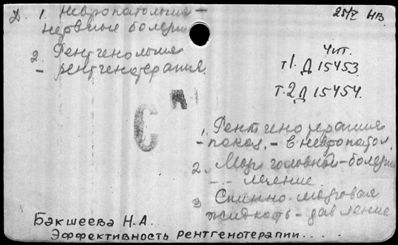 Д. 1. Невропатология -
нервные болезни
2. Рентгенология
- рентгенотерапия
25/I НВ
Чит.
т.1. Д 15453
т.2 Д 15454
С
1. Рентгенотерапия
- показ. - в невропатол.
2. головной - болезни
- - лечение
3 Спинно-мозговая
жидкость - давление
Бакшеева Н.А.
Эффективность рентгенотерапии....